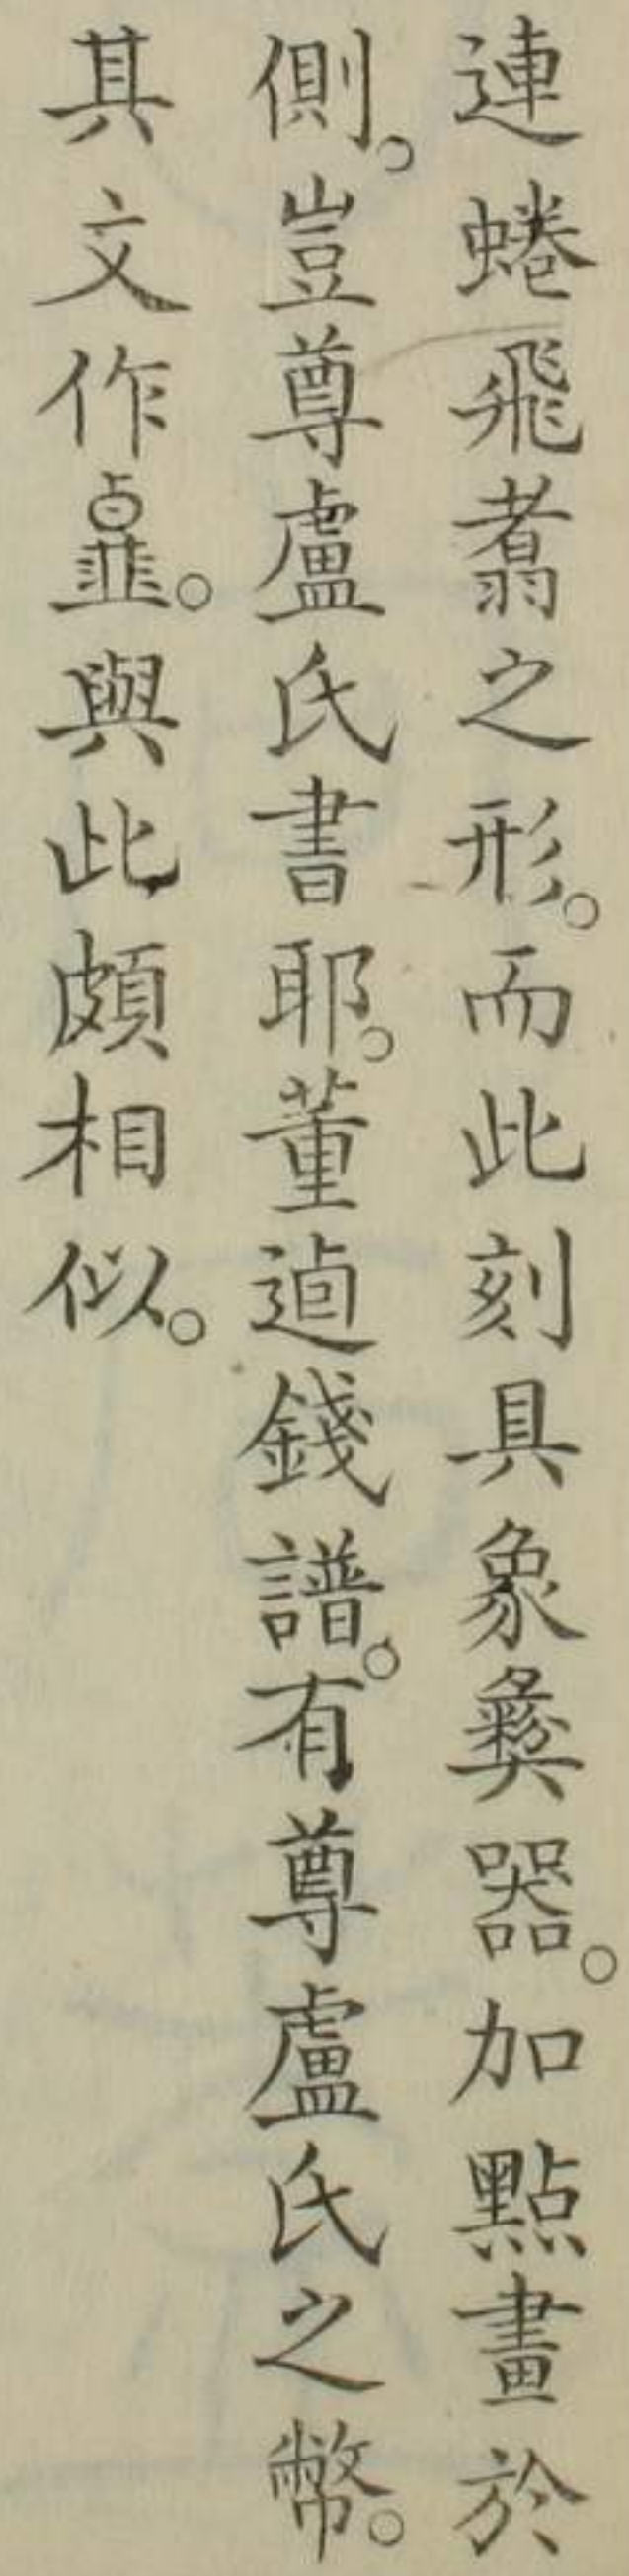 連蜷飛翥之形。而此刻具象彝器。加點畫於
側。豈尊盧氏書耶。董逌錢譜。有尊盧氏之幣。
其文作。與此頗相似。